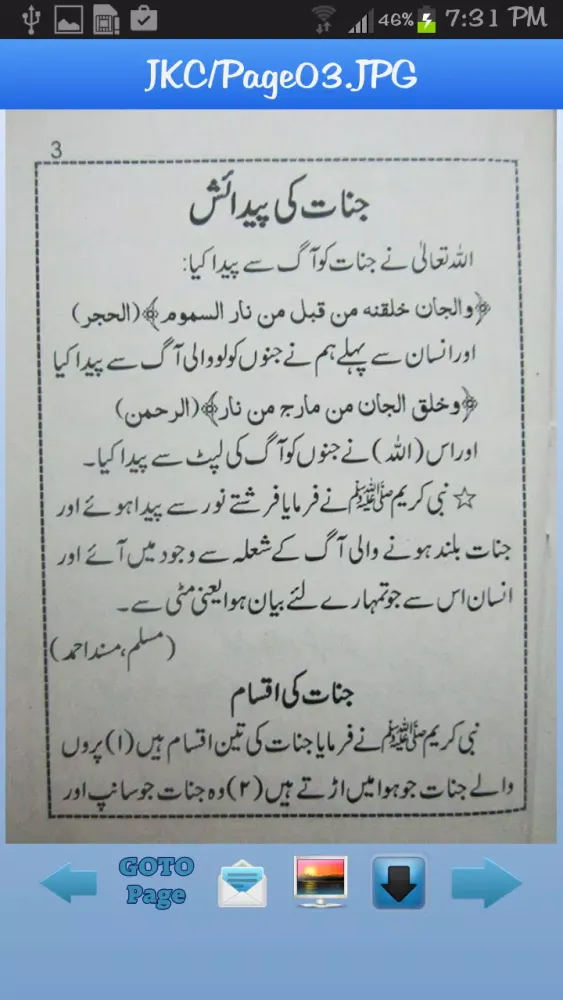 46% 7:31 PM
JKC/Page03.JPG
3
جنات کی پیدائش
اللہ تعالیٰ نے جنات کو آگ سے پیدا کیا:
﴿والجان خلقنه من قبل من نار السموم﴾ (الحجر)
اور انسان سے پہلے ہم نے جنوں کو لو والی آگ سے پیدا کیا
﴿وخلق الجان من مارج من نار﴾ (الرحمن)
اور اس (اللہ) نے جنوں کو آگ کی لپٹ سے پیدا کیا۔
☆ نبی کریم ﷺ نے فرمایا فرشتے نور سے پیدا ہوئے اور
جنات بلند ہونے والی آگ کے شعلہ سے وجود میں آئے اور
انسان اس سے جو تمہارے لئے بیان ہوا یعنی مٹی سے۔
(مسلم، مسند احمد)
جنات کی اقسام
نبی کریم ﷺ نے فرمایا جنات کی تین اقسام ہیں (۱) پروں
والے جنات جو ہوا میں اڑتے ہیں (۲) وہ جنات جو سانپ اور
GOTO
Page